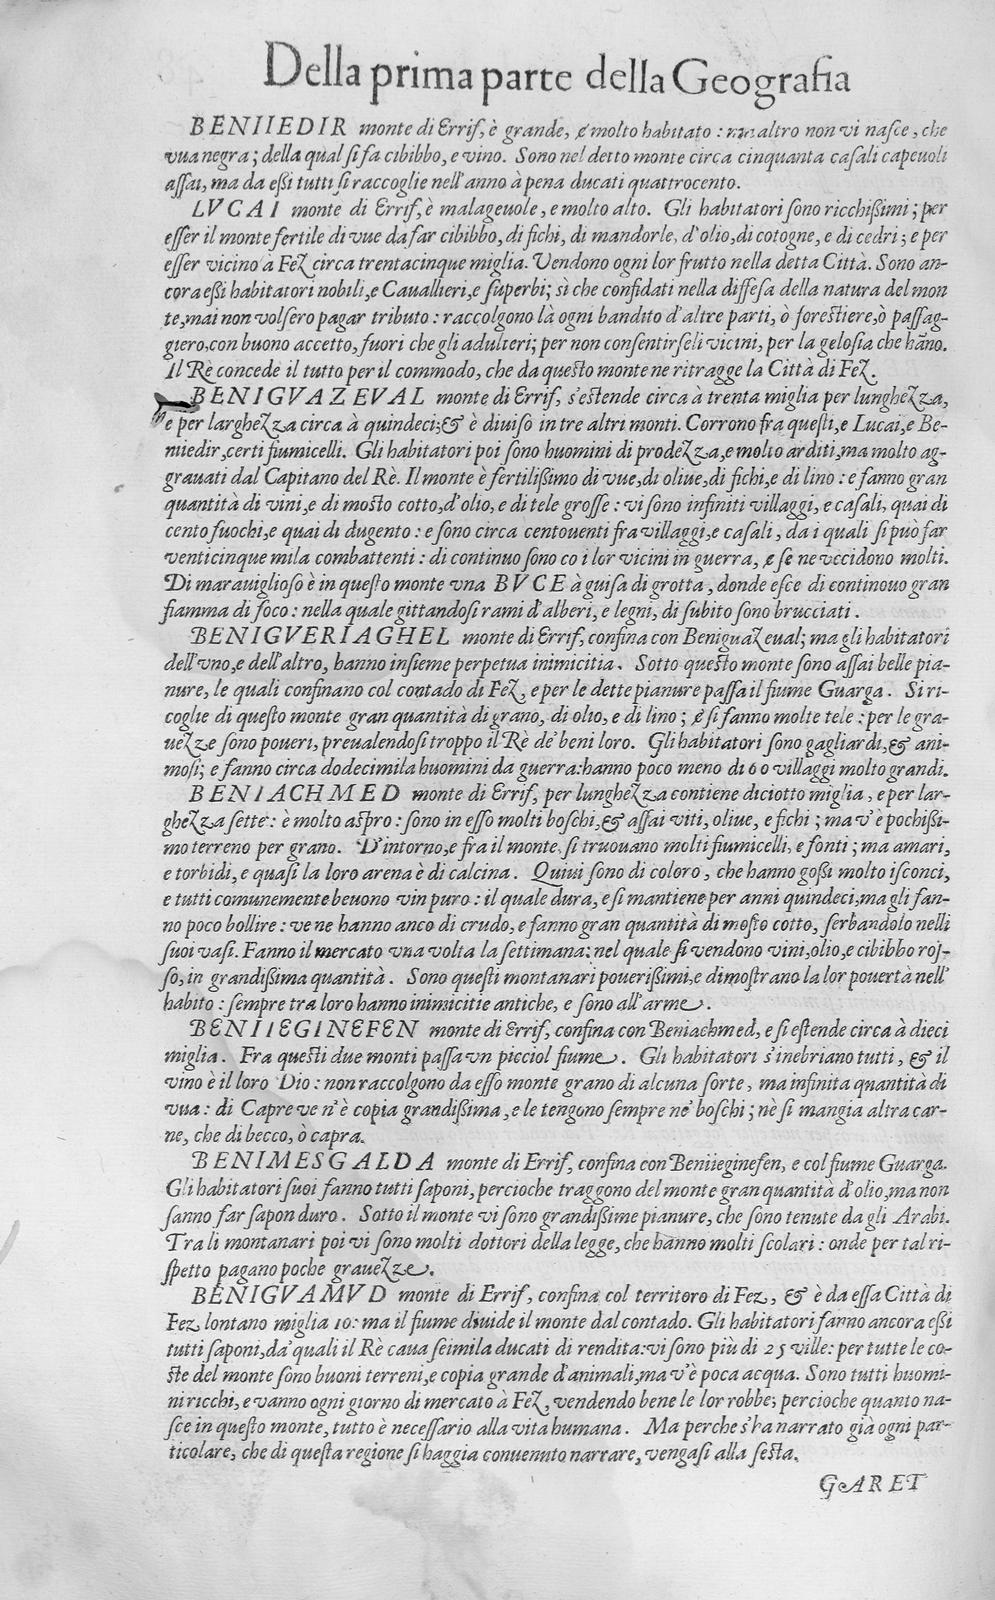 Della prima parte della Geografia
BENIIEDIR monte di Errif, è grande, e molto habitato: altro non vi nasce, che
vua negra; della qual si fa cibibbo, e vino. Sono nel detto monte circa cinquanta casali capeuoli
assai, ma da essi tutti si raccoglie nell'anno à pena ducati quattrocento.
LVCAI monte di Errif, è malageuole, e molto alto. Gli habitatori sono ricchissimi; per
esser il monte fertile di vue da far cibibbo, di fichi, di mandorle, d'olio, di cotogne, e di cedri; e per
esser vicino à Fez circa trentacinque miglia. Vendono ogni lor frutto nella detta Città. Sono an-
cora essi habitatori nobili, e Cauallieri, e superbi; sì che confidati nella diffesa della natura del mon
te, mai non volsero pagar tributo: raccolgono là ogni bandito d'altre parti, ò forestiere, ò passag-
giero, con buono accetto, fuori che gli adulteri; per non consentirseli vicini, per la gelosia che hāno.
Il Rè concede il tutto per il commodo, che da questo monte ne ritragge la Città di Fez.
BENIGVAZEVAL monte di Errif, s'estende circa à trenta miglia per lunghezza,
e per larghezza circa à quindeci; & è diuiso in tre altri monti. Corrono fra questi, e Lucai, e Be-
niiedir, certi fiumicelli. Gli habitatori poi sono huomini di prodezza, e molto arditi, ma molto ag-
grauati dal Capitano del Rè. Il monte è fertilissimo di vue, di oliue, di fichi, e di lino: e fanno gran
quantità di vini, e di mosto cotto, d'olio, e di tele grosse: vi sono infiniti villaggi, e casali, quai di
cento fuochi, e quai di dugento: e sono circa centouenti fra villaggi, e casali, da i quali si può far
venticinque mila combattenti: di continuo sono co i lor vicini in guerra, e se ne vccidono molti.
Di marauiglioso è in questo monte vna BVCE à guisa di grotta, donde esce di continouo gran
fiamma di foco: nella quale gittandosi rami d'alberi, e legni, di subito sono brucciati.
BENIGVERIAGHEL monte di Errif, confina con Beniguazeual; ma gli habitatori
dell'vno, e dell'altro, hanno insieme perpetua inimicitia. Sotto questo monte sono assai belle pia-
nure, le quali confinano col contado di Fez, e per le dette pianure passa il fiume Guarga. Si ri-
coglie di questo monte gran quantità di grano, di olio, e di lino; e si fanno molte tele: per le gra-
uezze sono poueri, preualendosi troppo il Rè de' beni loro. Gli habitatori sono gagliardi, & ani-
mosi; e fanno circa dodecimila huomini da guerra: hanno poco meno di 60 villaggi molto grandi.
BENIACHMED monte di Errif, per lunghezza contiene diciotto miglia, e per lar-
ghezza sette: è molto aspro: sono in esso molti boschi, & assai viti, oliue, e fichi; ma v'è pochissi-
mo terreno per grano. D'intorno, e fra il monte si truouano molti fiumicelli, e fonti; ma amari,
e torbidi, e quasi la loro arena è di calcina. Quiui sono di coloro, che hanno gossi molto isconci,
e tutti comunemente beuono vin puro: il quale dura, e si mantiene per anni quindeci, ma gli fan-
no poco bollire: ve ne hanno anco di crudo, e fanno gran quantità di mosto cotto, serbandolo nelli
suoi vasi. Fanno il mercato vna volta la settimana: nel quale si vendono vini, olio, e cibibbo ros-
so, in grandissima quantità. Sono questi montanari pouerissimi, e dimostrano la lor pouertà nell'
habito: sempre tra loro hanno inimicitie antiche, e sono all'arme.
BENIIEGINEFEN monte di Errif, confina con Beniachmed, e si estende circa à dieci
miglia. Fra questi due monti passa vn picciol fiume. Gli habitatori s'inebriano tutti, & il
vino è il loro Dio: non raccolgono da esso monte grano di alcuna sorte, ma infinita quantità di
vua: di Capre ve n'è copia grandissima, e le tengono sempre ne' boschi; nè si mangia altra car-
ne, che di becco, ò capra.
BENIMESGALDA monte di Errif, confina con Beniieginefen, e col fiume Guarga.
Gli habitatori suoi fanno tutti saponi, percioche traggono del monte gran quantità d'olio, ma non
sanno far sapon duro. Sotto il monte vi sono grandissime pianure, che sono tenute da gli Arabi.
Tra li montanari poi vi sono molti dottori della legge, che hanno molti scolari: onde per tal ri-
spetto pagano poche grauezze.
BENIGVAMVD monte di Errif, confina col territoro di Fez, & è da essa Città di
Fez lontano miglia 10: ma il fiume diuide il monte dal contado. Gli habitatori fanno ancora essi
tutti saponi, da' quali il Rè caua seimila ducati di rendita: vi sono più di 25 ville: per tutte le co-
ste del monte sono buoni terreni, e copia grande d'animali, ma v'è poca acqua. Sono tutti huomi-
ni ricchi, e vanno ogni giorno di mercato à Fez, vendendo bene le lor robbe; percioche quanto na-
sce in questo monte, tutto è necessario alla vita humana. Ma perche s'ha narrato già ogni par-
ticolare, che di questa regione si haggia conuenuto narrare, vengasi alla sesta.
GARET